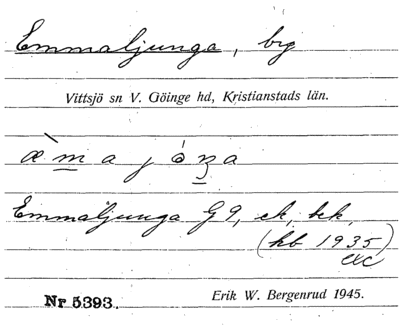 Emmaljunga, by
Vittsjö sn V. Göinge hd, Kristianstads län.
Emmaljunga G 9, ek,
(hb 1935)
Nr 5393.
Erik W. Bergenrud 1945.